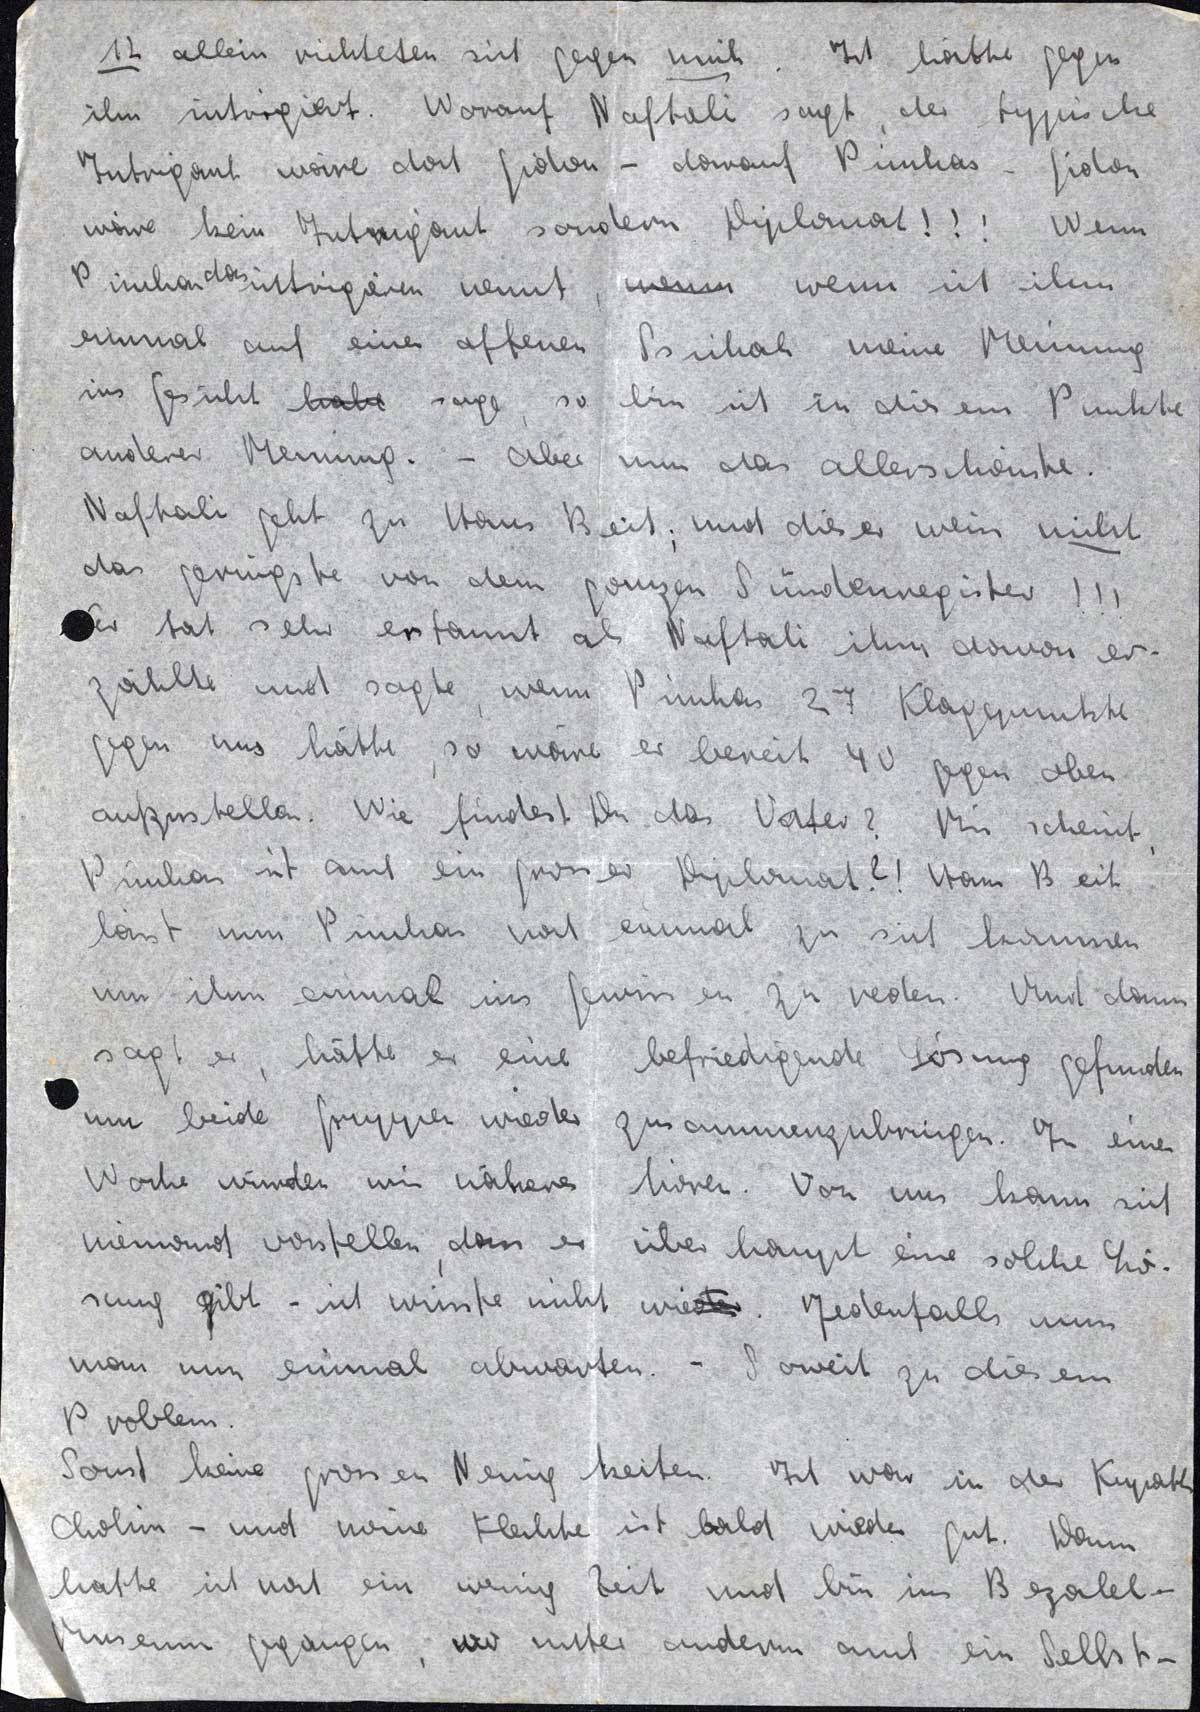 12 allein richteten sich gegen mich. Ich hätte gegen
ihn intrigiert. Worauf Naftali sagt, der typische
Intrigant wäre doch Gidon – darauf Pinchas – Gidon
wäre kein Intrigant sondern Diplomat!?! Wenn
Pinchas das intrigieren nennt, wenn wenn ich ihm
einmal auf einer offenen Ssichah meine Meinung
ins Gesicht habe sage, so bin ich in diesem Punkte
anderer Meinung. – Aber nun das allerschönste.
Naftali geht zu Hans Beit; und dieser weiss nicht
das geringste von dem ganzen Sündenregister!!!
Er tat sehr erstaunt als Naftali ihm davon er-
zählte und sagte, wenn Pinchas 27 Klagepunkte
gegen uns hätte, so wäre er bereit 40 gegen oben
aufzustellen. Wie findest Du das Vater? Mir scheint,
Pinchas ist auch ein grosser Diplomat?! Hans Beit
lässt nun Pinchas noch einmal zu sich kommen
um ihm einmal ins Gewissen zu reden. Und dann
sagt er, hätte er eine befriedigende Lösung gefunden
um beide Gruppen wieder zusammenzubringen. In einer
Woche würden wir näheres hören. Von uns kann sich
niemand vorstellen, dass es überhaupt eine solche Lö-
sung gibt – ich wüsste nicht wieder. Jedenfalls muss
man nun einmal abwarten. – Soweit zu diesem
Problem.
Sonst keine grossen Neuigkeiten. Ich war in der Kupath
Cholim – und meine Flechte ist bald wieder gut. Dann
hatte ich noch ein wenig Zeit und bin ins Bezalel-
Museum gegangen, wo unter anderem auch ein Selbst-